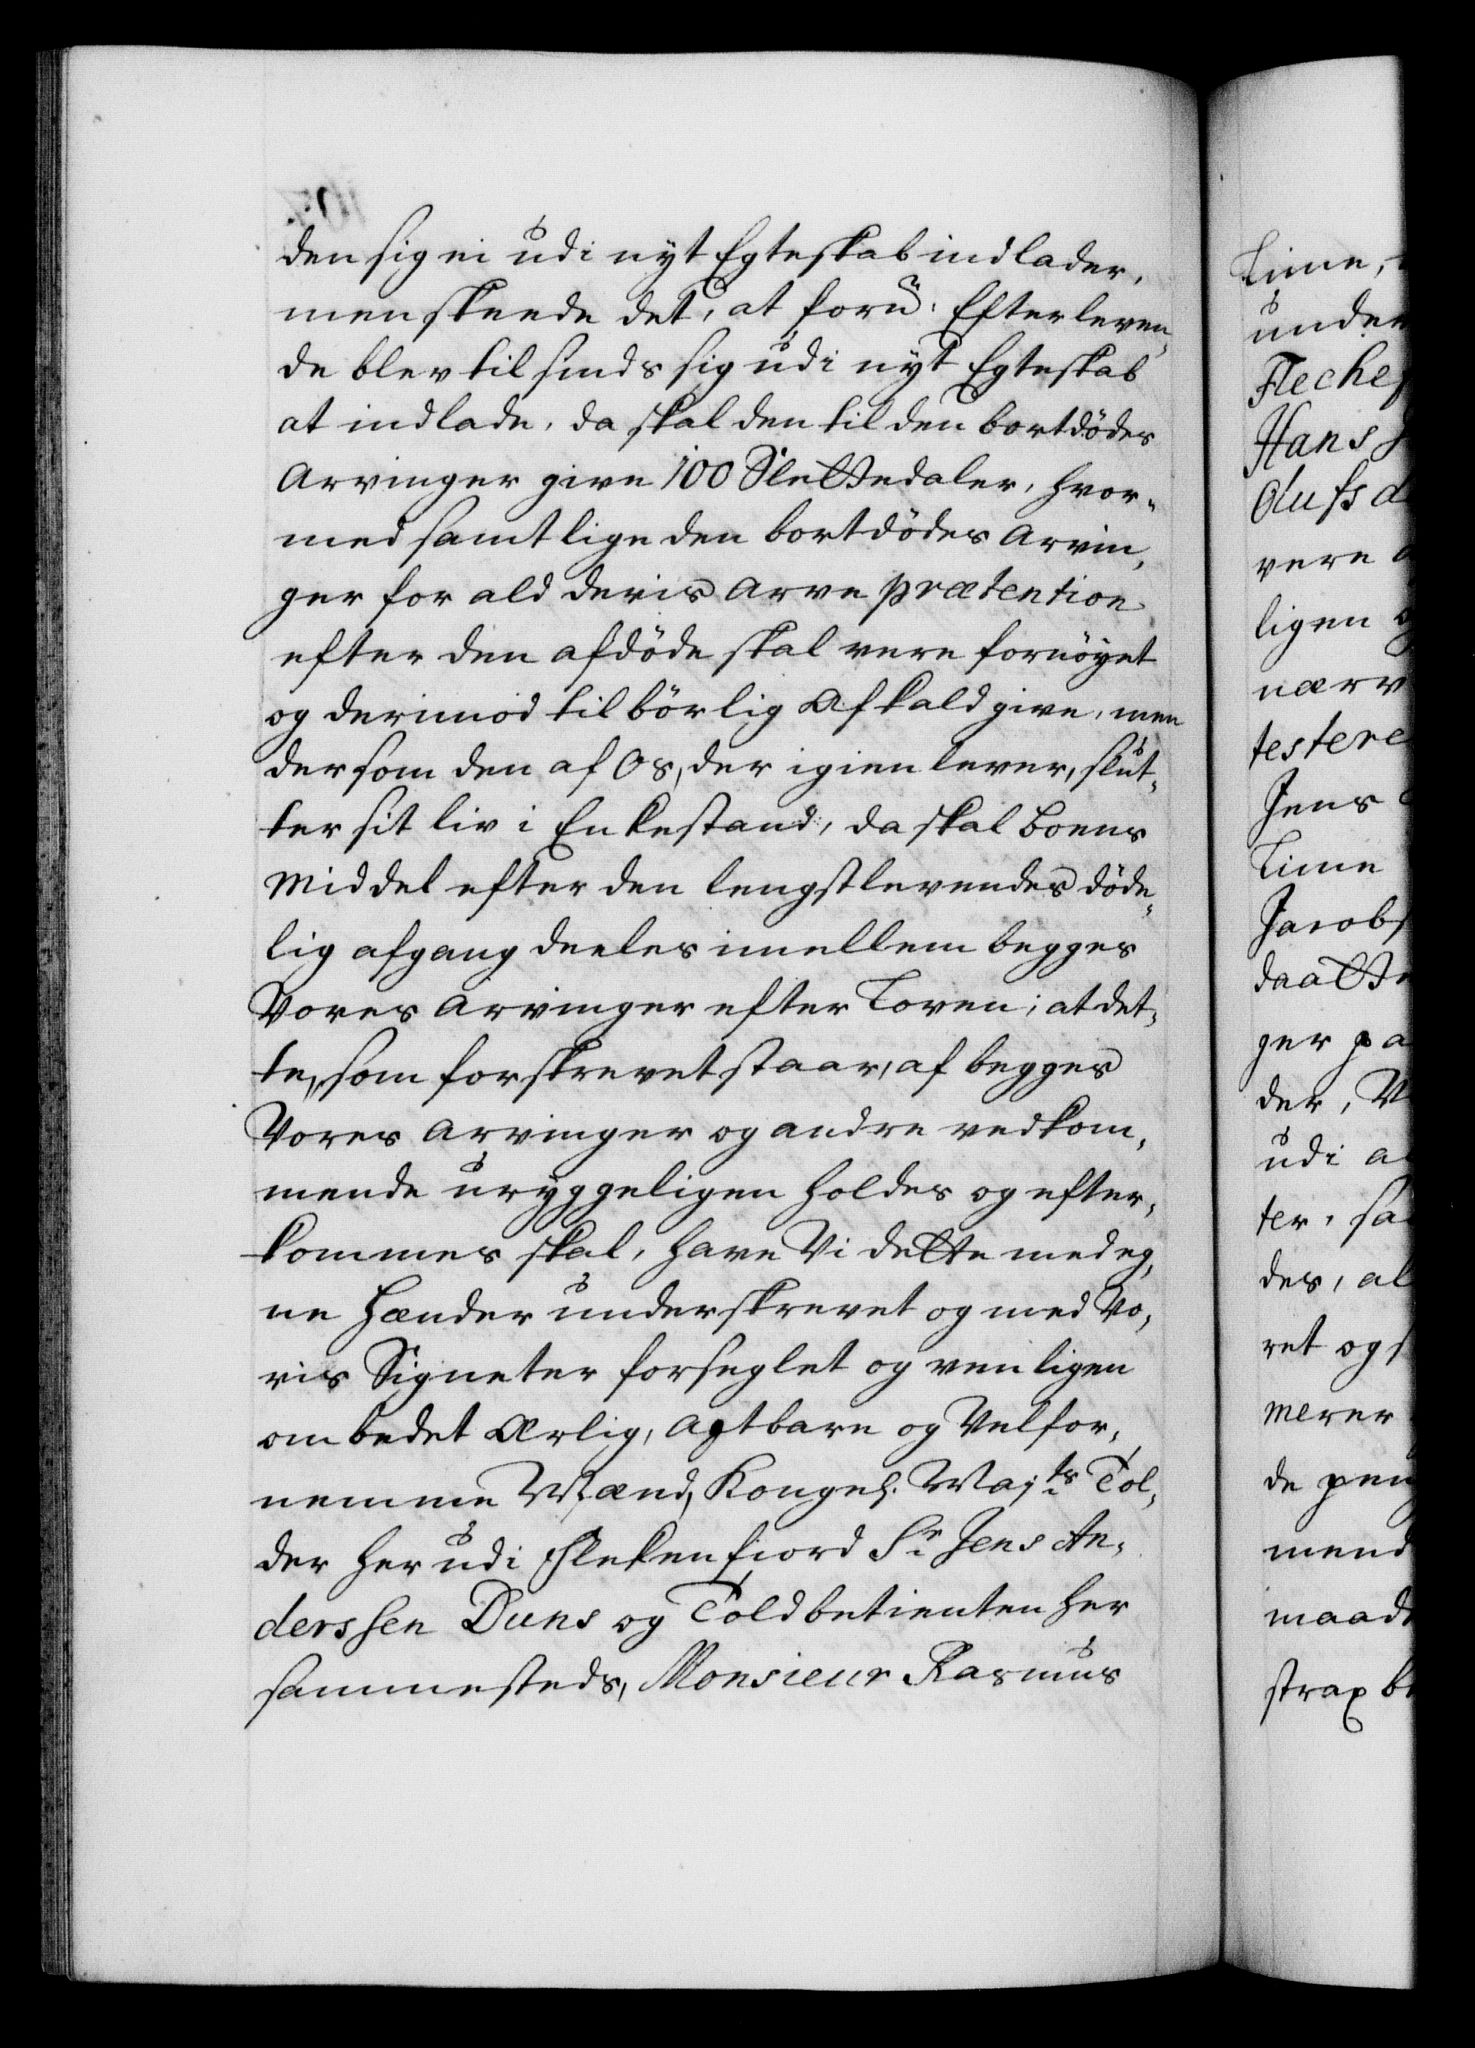 den sig ei udi nyt Egteskab indlader,
men skeede det, at forn: Efterleven-
de blev tilsinds sig udi nyt Egteskab
at indlade, da skal den til den bortdödes
Arvinger give 100 Slettedaler, hvor-
med samtlige den bortdödes Arvin-
ger for ald deris Arve prætention
efter den afdöde skal vere fornöyet
og derimod tilbörlig Afkald give, men
dersom den af Os, der igien lever, slut-
ter sit liv i Enkestand, da skal Boens
Middel efter den lengstlevendes döde-
lig afgang deeles imellem begges
Vores Arvinger efter Loven; at det-
te, som forskrevet staar, af begges
Vores Arvinger og andre vedkom-
mende uryggeligen holdes og efter-
kommes skal, have Vi dette med eg-
ne Hænder underskrevet og med Vo-
ris Signeter forseglet og venligen
ombedet Ærlig, Agtbare og Velfor-
nemme Mænd, Kongel. Maj:ts Tol-
der her udi Flekkefiord Sr Jens An-
derssen Duns og Toldbetienten her
sammesteds, Monsieur Rasmus
Lime,
under
Fleche
Hans
Olufsd
vere
ligen
nærv
testere
Jens
Lime
Jacobs
daatte
ger pa
der, V
udi a
ter, sa
des, al
ret og s
merer
de pen
mend
maade
strax be